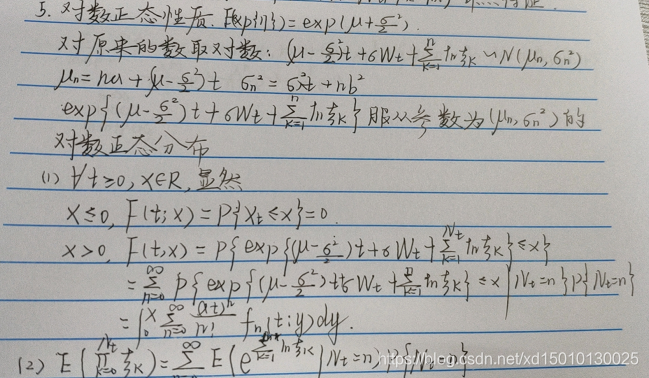 5. 对数正态性质. 取exp{η}=exp(μ+σ²/2).
对原来的数取对数: (μ-σ²/2)t+σWt+∑_{k=1}^{n} ln ξk ~ N(μn, σn²)
μn=na+(μ-σ²/2)t σn²=σ²t+nb²
exp{(μ-σ²/2)t+σWt+∑_{k=1}^{n} ln ξk} 服从参数为(μn, σn²)的
对数正态分布
(1) ∀t≥0, x∈R, 显然
x≤0, F(t;x)=P{Xt≤x}=0.
x>0, F(t,x)=P{exp{(μ-σ²/2)t+σWt+∑_{k=1}^{Nt} ln ξk}≤x}
=∑_{n=0}^{∞} P{exp{(μ-σ²/2)t+σWt+∑_{k=1}^{n} ln ξk}≤x|Nt=n}P{Nt=n}
=∫_0^x ∑_{n=0}^{∞} (λt)^n/n! fn(t;y)dy.
(2) E(∏_{k=0}^{Nt} ξk)=∑_{n=0}^{∞} E(e^{∑_{k=1} ln ξk}|Nt=n)P{Nt=n}
https://blog.csdn.net/xd15010130025